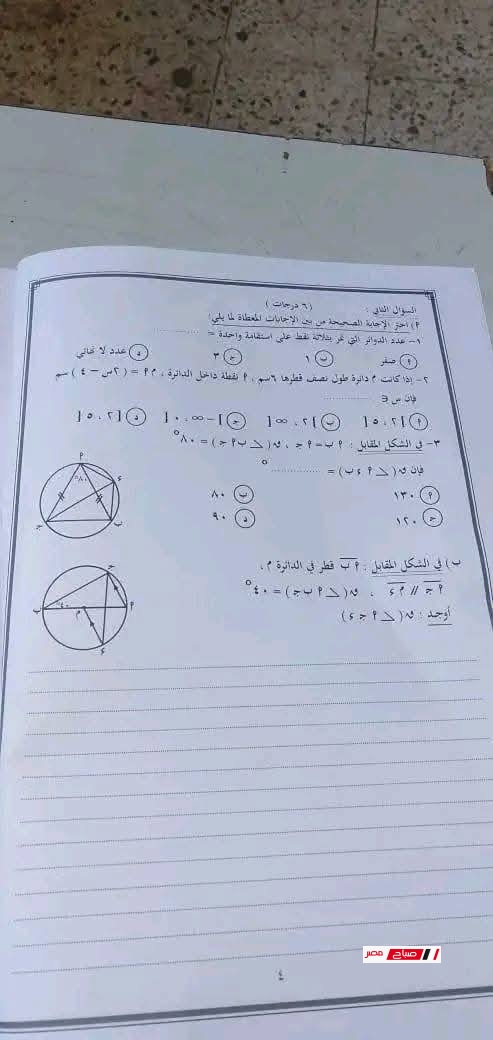 السؤال الثاني : ( ٦ درجات )
٩) اختر الإجابة الصحيحة من بين الإجابات المعطاة لما يلي:
١- عدد الدوائر التي تمر بثلاثة نقط على استقامة واحدة = ..........
٩ صفر ب ١ جـ ٣ د عدد لا نهائي
٢- إذا كانت م دائرة طول نصف قطرها ٦سم ، ٩ نقطة داخل الدائرة ، م٩ = (٢س - ٤) سم
فإن س ∈ ..........
٩ [٢ ، ٥[ ب ]٢ ، ∞[ جـ ]-∞ ، ٠[ د ]٢ ، ٥[
٣- في الشكل المقابل : ٩ب = ٩جـ ، ق(∠ ب٩جـ) = ٨٠°
فإن ق(∠ ٩ء ب) = ..........°
٩ ١٣٠ ب ٨٠
جـ ١٢٠ د ٩٠
٩ ء ٨٠° جـ ب
ب) في الشكل المقابل : ٩ب قطر في الدائرة م ،
٩جـ // م ء ، ق(∠ ٩ب جـ) = ٤٠°
أوجد : ق(∠ ٩جـ ء)
جـ ب ٤٠° م ٩ ء
صباح مصر
٤